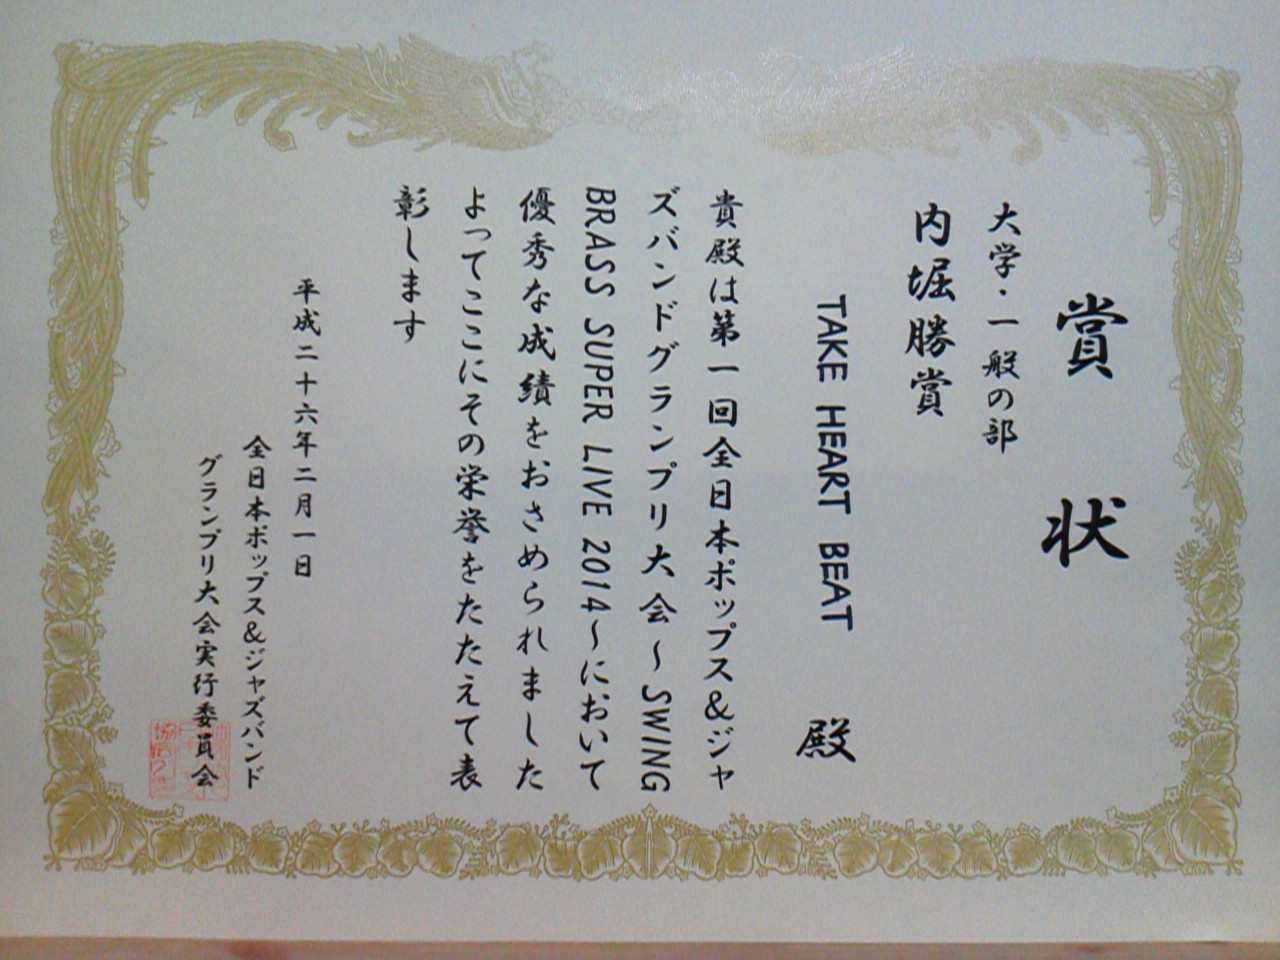 賞状
大学・一般の部
内堀勝賞
TAKE HEART BEAT 殿
貴殿は第一回全日本ポップス&ジャ
ズバンドグランプリ大会～SWING
BRASS SUPER LIVE 2014～において
優秀な成績をおさめられました
よってここにその栄誉をたたえて表
彰します
平成二十六年二月一日
全日本ポップス&ジャズバンド
グランプリ大会実行委員会